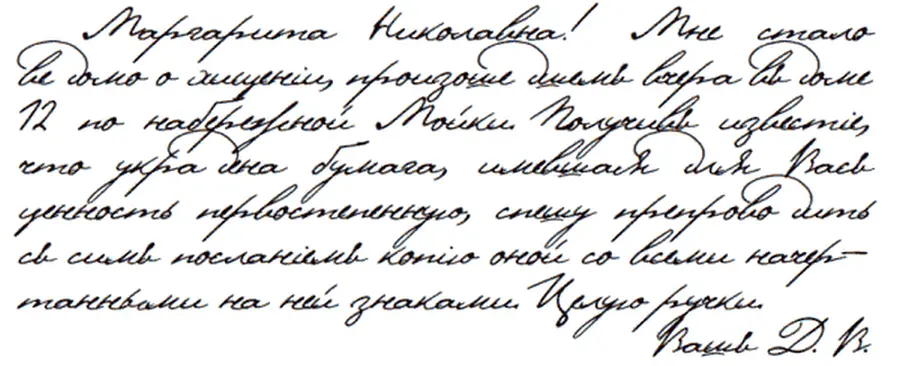 Маргарита Николавна! Мне стало
ведомо о хищенiи, произошедшемъ вчера въ доме
12 по набережной Мойки. Получивъ известiе,
что украдена бумага, имевшая для Васъ
ценность первостепенную, спешу препроводить
съ симъ посланiемъ копiю оной со всеми начер-
танными на ней знаками. Целую ручки.
Вашъ Д. В.